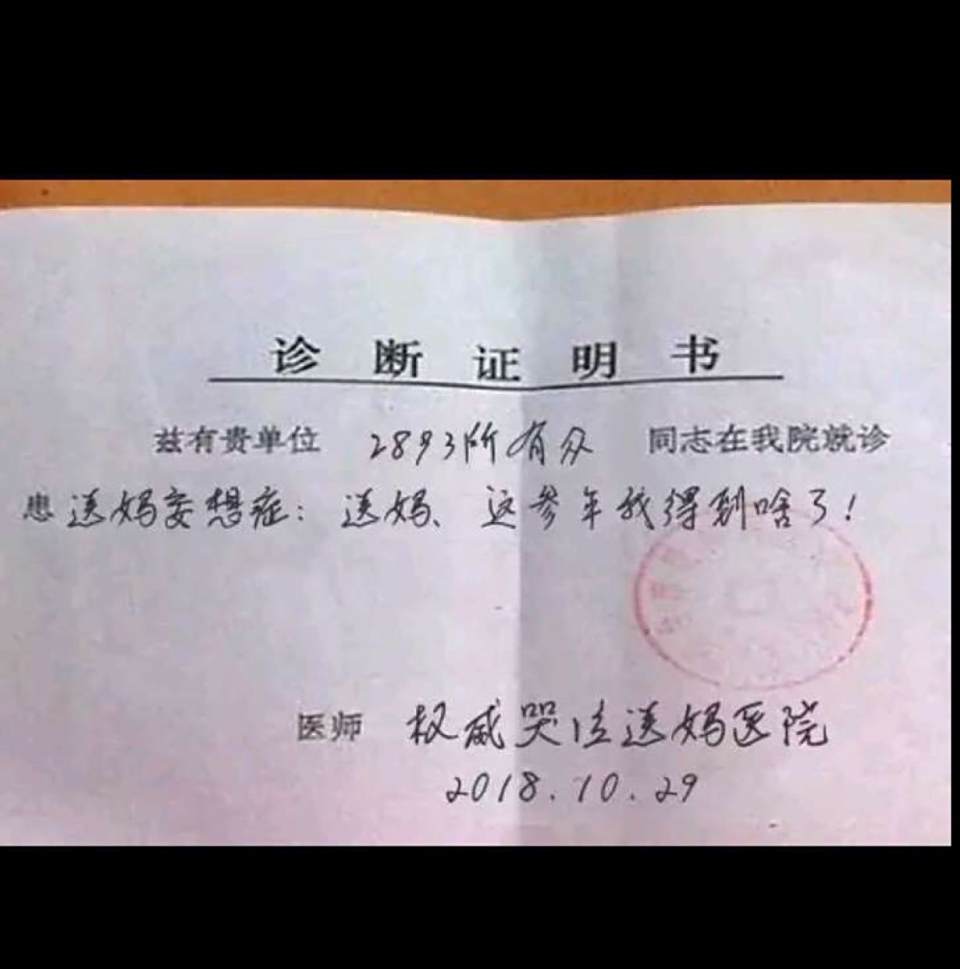 诊断证明书
兹有贵单位 2893所有众 同志在我院就诊
患 送妈妄想症：送妈、这参年我得到啥了！
医师 权威哭法送妈医院
2018.10.29